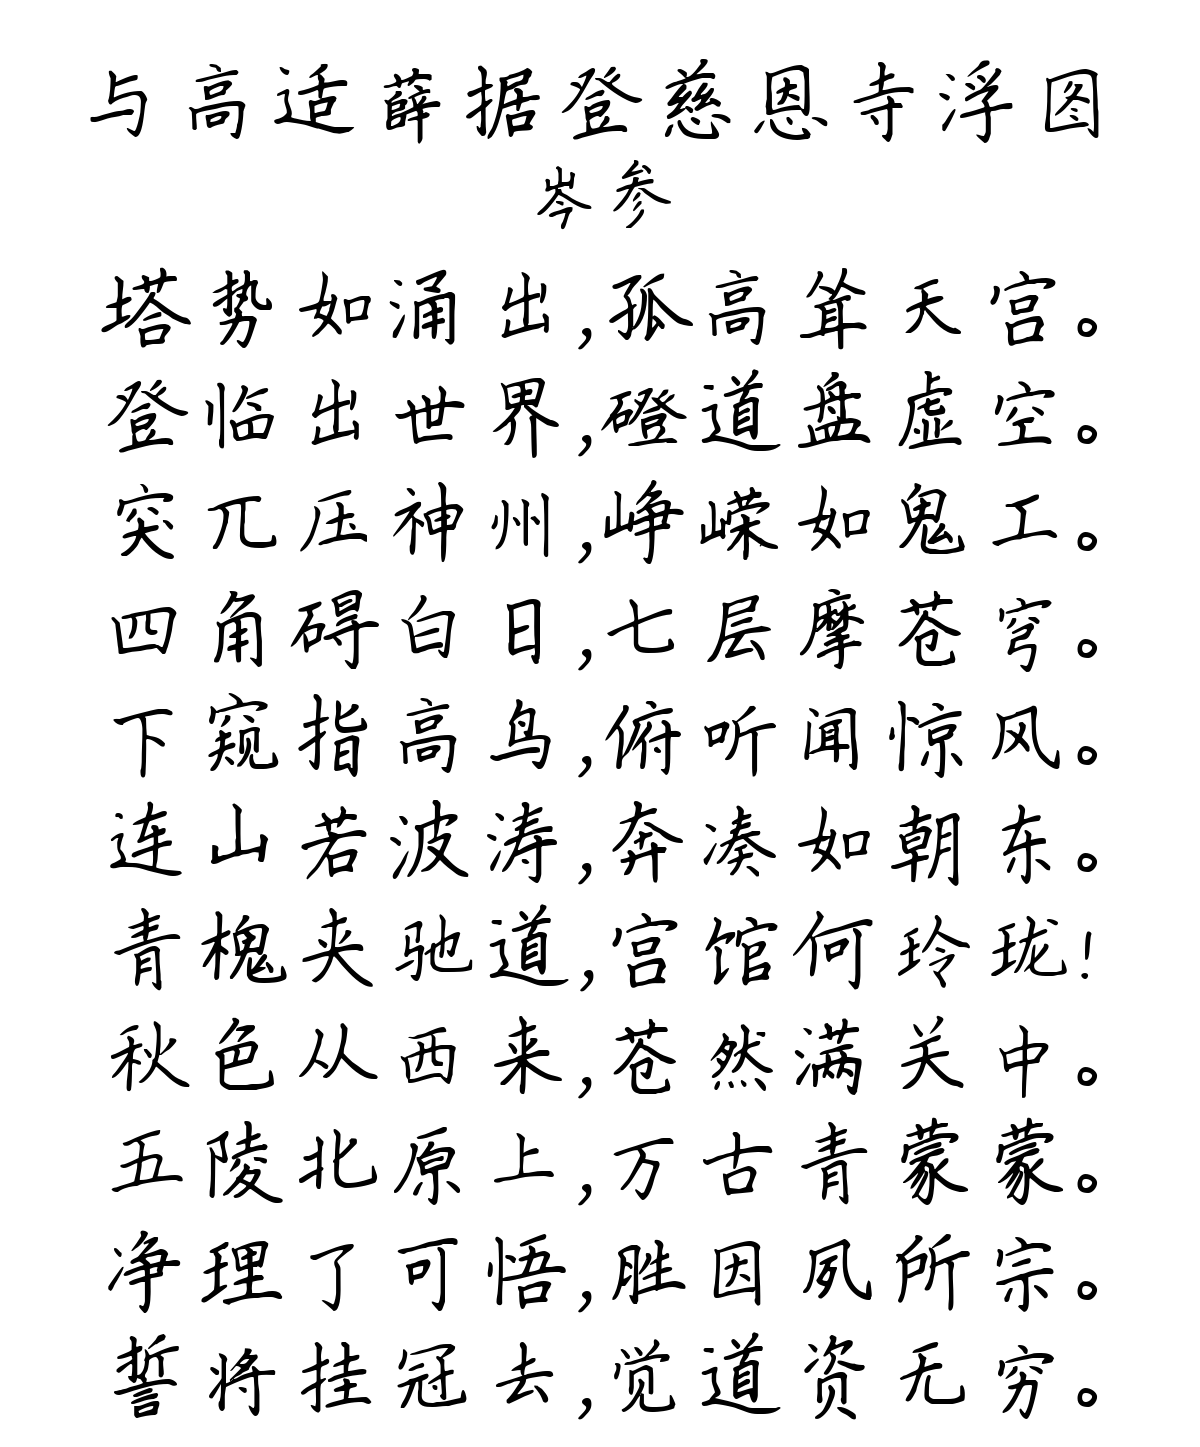 与高适薛据登慈恩寺浮图
岑参
塔势如涌出,孤高耸天宫。
登临出世界,磴道盘虚空。
突兀压神州,峥嵘如鬼工。
四角碍白日,七层摩苍穹。
下窥指高鸟,俯听闻惊风。
连山若波涛,奔凑如朝东。
青槐夹驰道,宫馆何玲珑!
秋色从西来,苍然满关中。
五陵北原上,万古青蒙蒙。
净理了可悟,胜因夙所宗。
誓将挂冠去,觉道资无穷。